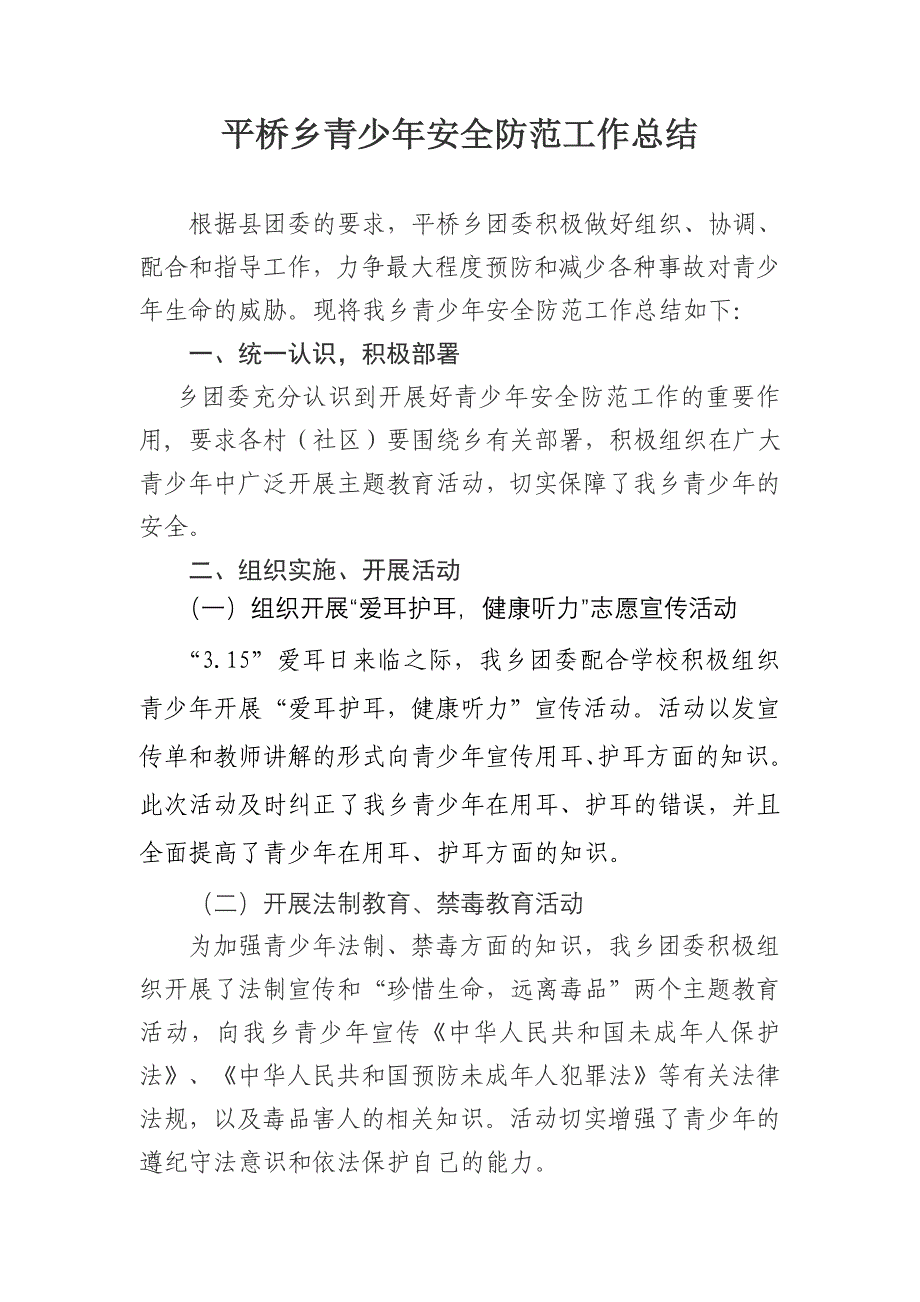 平桥乡青少年安全防范工作总结
根据县团委的要求，平桥乡团委积极做好组织、协调、
配合和指导工作，力争最大程度预防和减少各种事故对青少
年生命的威胁。现将我乡青少年安全防范工作总结如下：
一、统一认识，积极部署
乡团委充分认识到开展好青少年安全防范工作的重要作
用，要求各村（社区）要围绕乡有关部署，积极组织在广大
青少年中广泛开展主题教育活动，切实保障了我乡青少年的
安全。
二、组织实施、开展活动
（一）组织开展“爱耳护耳，健康听力”志愿宣传活动
“3.15”爱耳日来临之际，我乡团委配合学校积极组织
青少年开展“爱耳护耳，健康听力”宣传活动。活动以发宣
传单和教师讲解的形式向青少年宣传用耳、护耳方面的知识。
此次活动及时纠正了我乡青少年在用耳、护耳的错误，并且
全面提高了青少年在用耳、护耳方面的知识。
（二）开展法制教育、禁毒教育活动
为加强青少年法制、禁毒方面的知识，我乡团委积极组
织开展了法制宣传和“珍惜生命，远离毒品”两个主题教育
活动，向我乡青少年宣传《中华人民共和国未成年人保护
法》、《中华人民共和国预防未成年人犯罪法》等有关法律
法规，以及毒品害人的相关知识。活动切实增强了青少年的
遵纪守法意识和依法保护自己的能力。